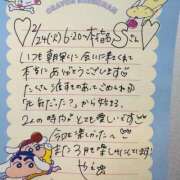 CRAYON SHINCHAN
2/24(火)6:20〜本指名Sさん
いつも朝早くに会いに来てくれて
本当にありがとうございます♡
たくさん渡すものあってごめんね
元気だった？から始まる
2人の時間がとても愛しいです♡
今日も楽しかった〜
また3月も楽しみにしています